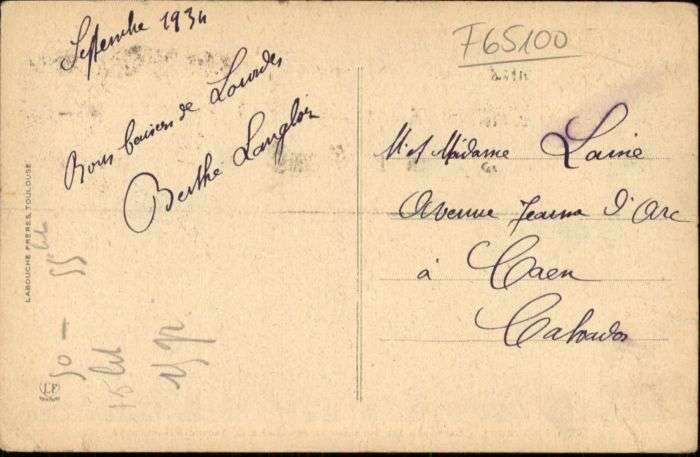 Septembre 1934
Bons baisers de Lourdes
Berthe Langlois
F65100
M. et Madame Lainé
Avenue Jeanne d'Arc
à Caen
Calvados
LABOUCHE FRÈRES, TOULOUSE
50 —